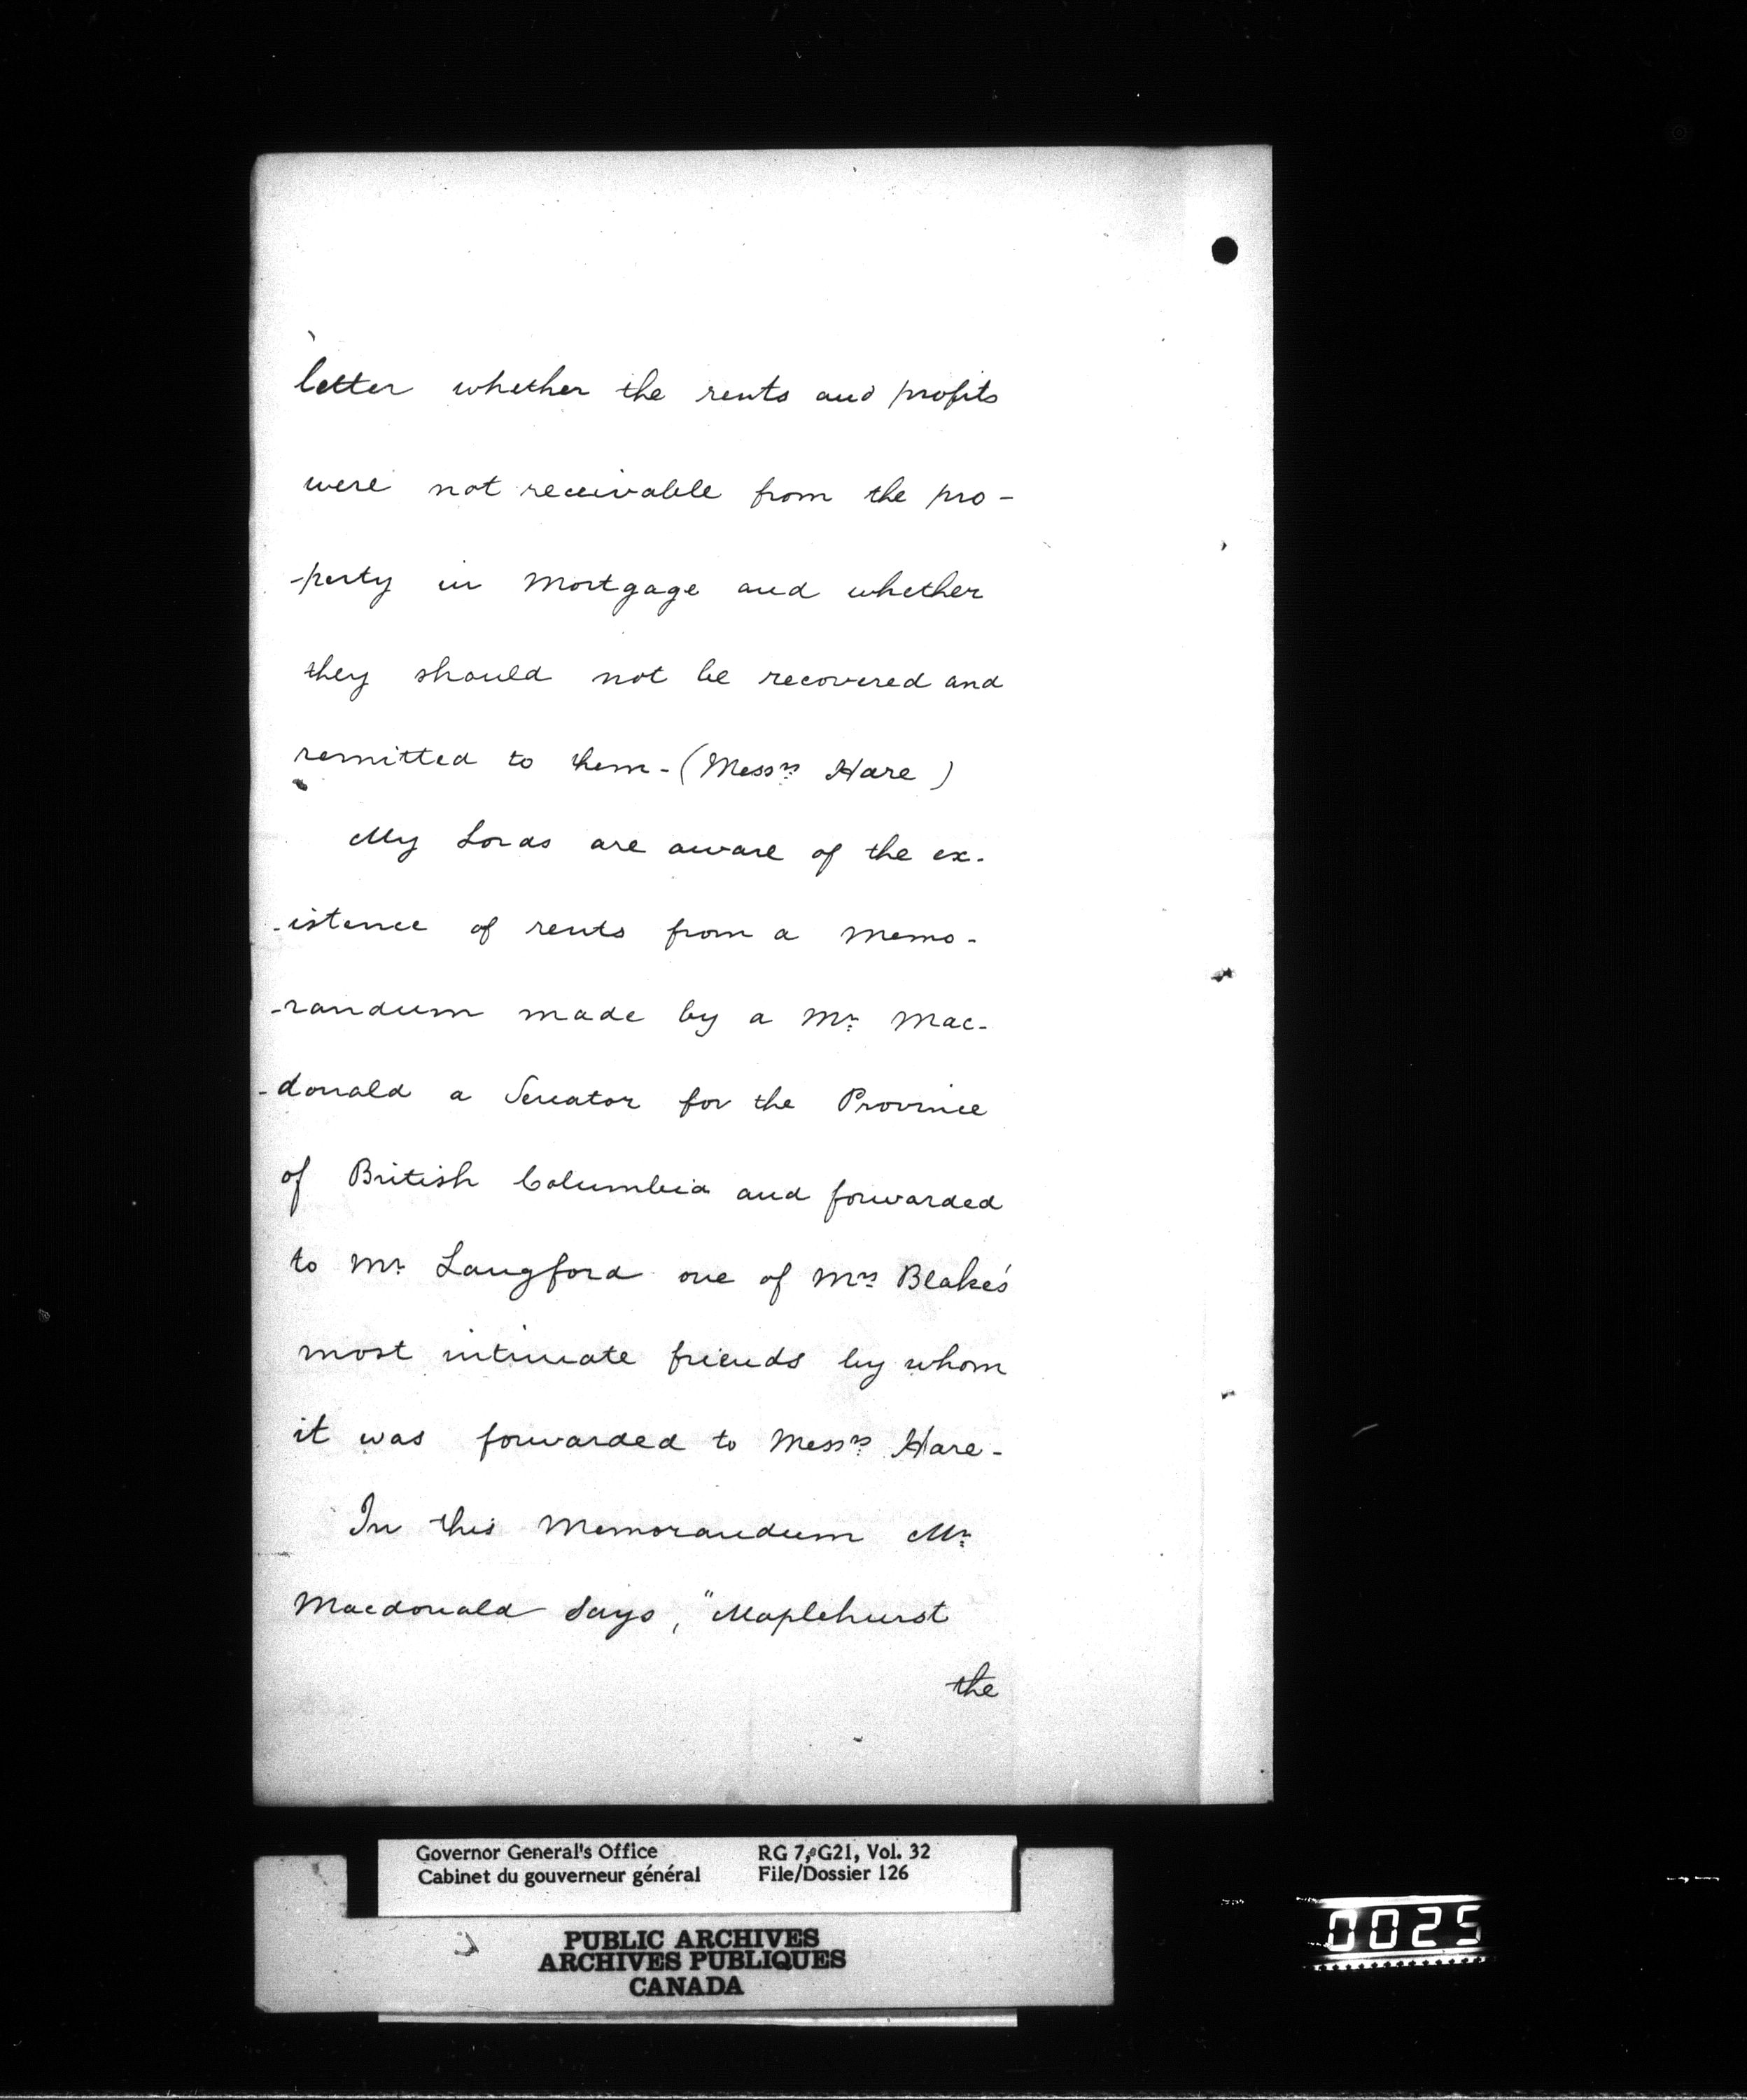 letter whether the rents and profits
were not receivable from the pro-
-perty in Mortgage and whether
they should not be recovered and
remitted to them - (Messrs Hare)
My Lords are aware of the ex-
-istence of rents from a Memo-
-randum made by a Mr Mac-
-donald a Senator for the Province
of British Columbia and forwarded
to Mr Langford one of Mrs Blake's
most intimate friends by whom
it was forwarded to Messrs Hare -
In this Memorandum Mr
Macdonald says, "Maplehurst
the
Governor General's Office RG 7, G21, Vol. 32
Cabinet du gouverneur général File/Dossier 126
PUBLIC ARCHIVES
ARCHIVES PUBLIQUES
CANADA
0025